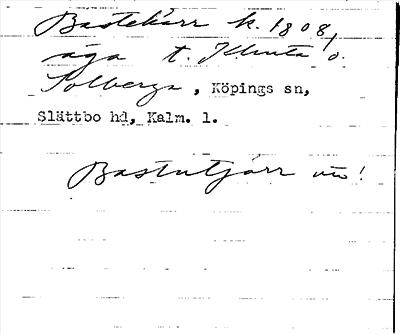 Bastekärr k. 1808,
äga t. Klinta o.
Solberga, Köpings sn,
Slättbo hd, Kalm. l.
Bastutjärr un!